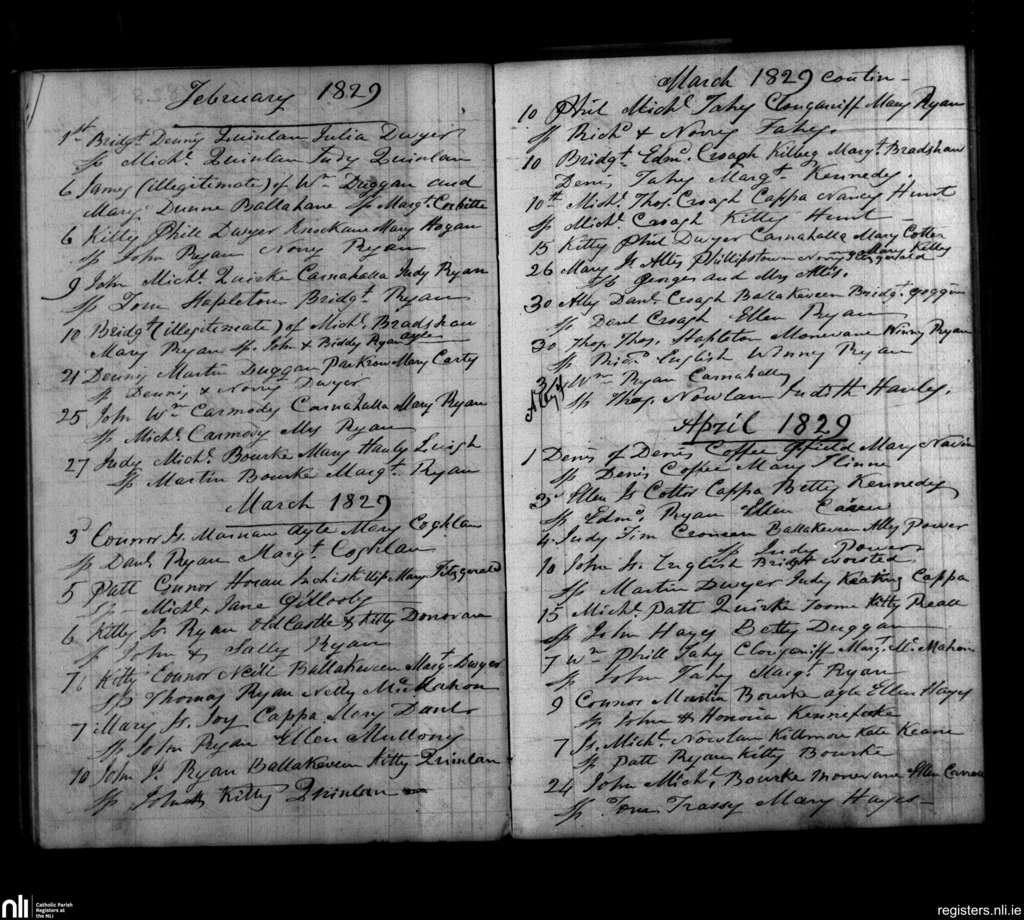 February 1829
1st Bridgt. Denny Quinlan Julia Dwyer
Sp Michl. Quinlan Judy Quinlan
6 James (illegitimate) of Wm Duggan and
Mary Dunne Ballahane Sp Margt. Corbitte
6 Kitty Phill Dwyer Knockane Mary Hogan
Sp John Ryan Norry Ryan
9 John Michl. Quirke Carnahalla Judy Ryan
Sp Tom Stapleton Bridgt. Ryan
10 Bridgt (illegitimate) of Michl. Bradshaw
Mary Ryan Sp. John & Biddy Ryan ayle
21 Denny Martin Duggan Parkrow Mary Carty
Sp Denny & Norry Dwyer
25 John Wm Carmody Carnahalla Mary Ryan
Sp Michl. Carmody Mrs Ryan
27 Judy Michl. Bourke Mary Hanly Leugh
Sp Martin Bourke Margt. Ryan
March 1829
3d Connor Js. Marnane ayle Mary Coghlan
Sp Danl. Ryan Margt. Coghlan
5 Patt Conor Horan Mary Fitzgerald
Sp Michl. & Jane Gillooby
6 Kitty Js. Ryan Old Castle & Kitty Donovan
Sp John & Sally Ryan
7 Kitty Connor Neill Ballakeveen Margt. Dwyer
Sp Thomas Ryan Nelly McMahon
7 Mary Js. Joy Cappa Mary Danl.
Sp John Ryan Ellen Mullony
10 John Js. Ryan Ballakeveen Kitty Quinlan
Sp John & Kitty Quinlan
March 1829 contin-
10 Phil Michl. Fahy Clonganiff Mary Ryan
Sp Richd & Norry Fahy.
10 Bridgt. Edmd. Croagh Kilbeg Margt. Bradshaw
Denis Fahy Margt. Kennedy.
10th Michl. Thos. Croagh Cappa Nancy Hunt
Sp Michl. Croagh Kitty Hunt
15 Kitty Phil Dwyer Carnahalla Mary Cotter
Mary Kelly
26 Mary Js Attis Phillipstown Norry Fitzgerald
Sp Georges and Mrs Attis.
30 Ally Danl. Croagh Ballakeveen Bridgt. Goggin
Sp Danl Croagh Ellen Ryan
30 Thos. Thos. Stapleton Monevane Winny Ryan
Sp Richd. English Winny Ryan
31 Wm Ryan Carnahally
Sp Thos. Nowlan Judith Hanly.
April 1829
1 Denis of Denis Coffee Mary Navin
Sp Denis Coffee Mary Flinne
3d Ellen Js Cotter Cappa Betty Kennedy
Sp Edmd. Ryan Ellen
4 Judy Tim Croneen Ballakeveen Ally Power
Sp Judy Power
10 John Js. English Bridgt Worsted
Sp Martin Dwyer Judy Keating Cappa
15 Michl. Patt Quirke Toome Kitty
Sp John Hayes Betty Duggan
7 Wm Phill Fahy Clonganiff Margt. McMahon
Sp John Fahy Margt. Ryan
9 Connor Martin Bourke ayle Ellen Hayes
Sp John & Honoria Kennefake
7 Js. Michl. Nowlan Killmore Kate Keane
Sp Patt Ryan Kitty Bourke
24 John Michl. Bourke Monevane Ellen
Sp Tom Trassy Mary Hayes
nli
Catholic Parish
Registers at
the NLI
registers.nli.ie